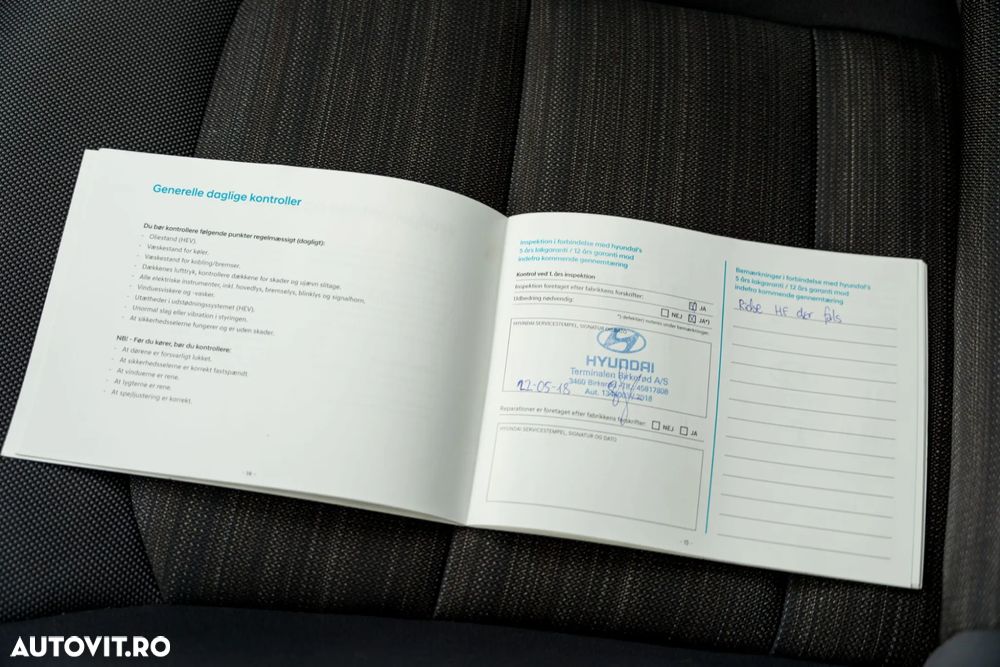 Generelle daglige kontroller
Du bør kontrollere følgende punkter regelmæssigt (dagligt):
- Oliestand (HEV).
- Væskestand for køler.
- Væskestand for kobling/bremser.
- Dækkenes lufttryk, kontrollere dækkene for skader og ujævn slitage.
- Alle elektriske instrumenter, inkl. hovedlys, bremselys, blinklys og signalhorn.
- Vinduesviskere og -vasker.
- Utætheder i udstødningssystemet (HEV).
- Unormal støj eller vibration i styringen.
- At sikkerhedsselerne fungerer og er uden skader.
NB! - Før du kører, bør du kontrollere:
- At dørene er forsvarligt lukket.
- At sikkerhedsselerne er korrekt fastspændt.
- At vinduerne er rene.
- At lygterne er rene.
- At spejljustering er korrekt.
- 14 -
Inspektion i forbindelse med hyundai's
5 års lakgaranti / 12 års garanti mod
indefra kommende gennemtæring
Kontrol ved 1. års inspektion
Inspektion foretaget efter fabrikkens forskrifter:
JA
Udbedring nødvendig:
NEJ JA*)
*) defekt(er) noteres under bemærkninger
HYUNDAI SERVICESTEMPEL, SIGNATUR OG DATO
HYUNDAI
Terminalen Birkerød A/S
3460 Birkerød
22-05-18
Reparationer er foretaget efter fabrikkens forskrifter:
NEJ JA
HYUNDAI SERVICESTEMPEL, SIGNATUR OG DATO
- 15 -
Bemærkninger i forbindelse med hyundai's
5 års lakgaranti / 12 års garanti mod
indefra kommende gennemtæring
HF dør fals
AUTOVIT.RO